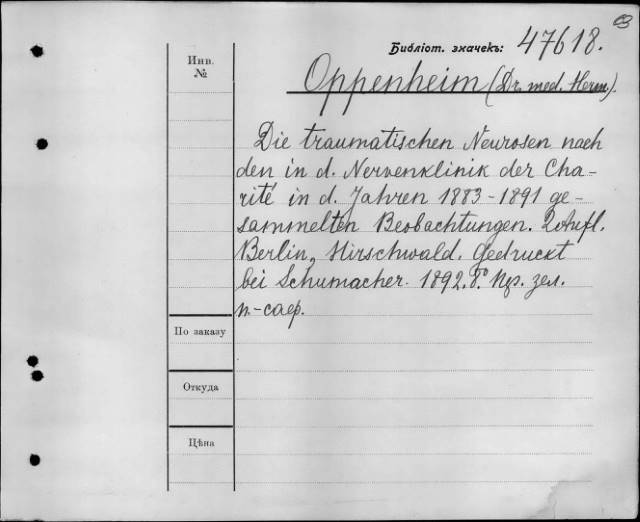 Библіот. значекъ: 47618.
Инв.
№
Oppenheim (Dr. med. Herm.).
Die traumatischen Neurosen nach
den in d. Nervenklinik der Cha-
rité in d. Jahren 1883-1891 ge-
sammelten Beobachtungen. 2 Aufl.
Berlin, Hirschwald. Gedruckt
bei Schumacher. 1892. 8° зел.
По заказу
Откуда
Цѣна